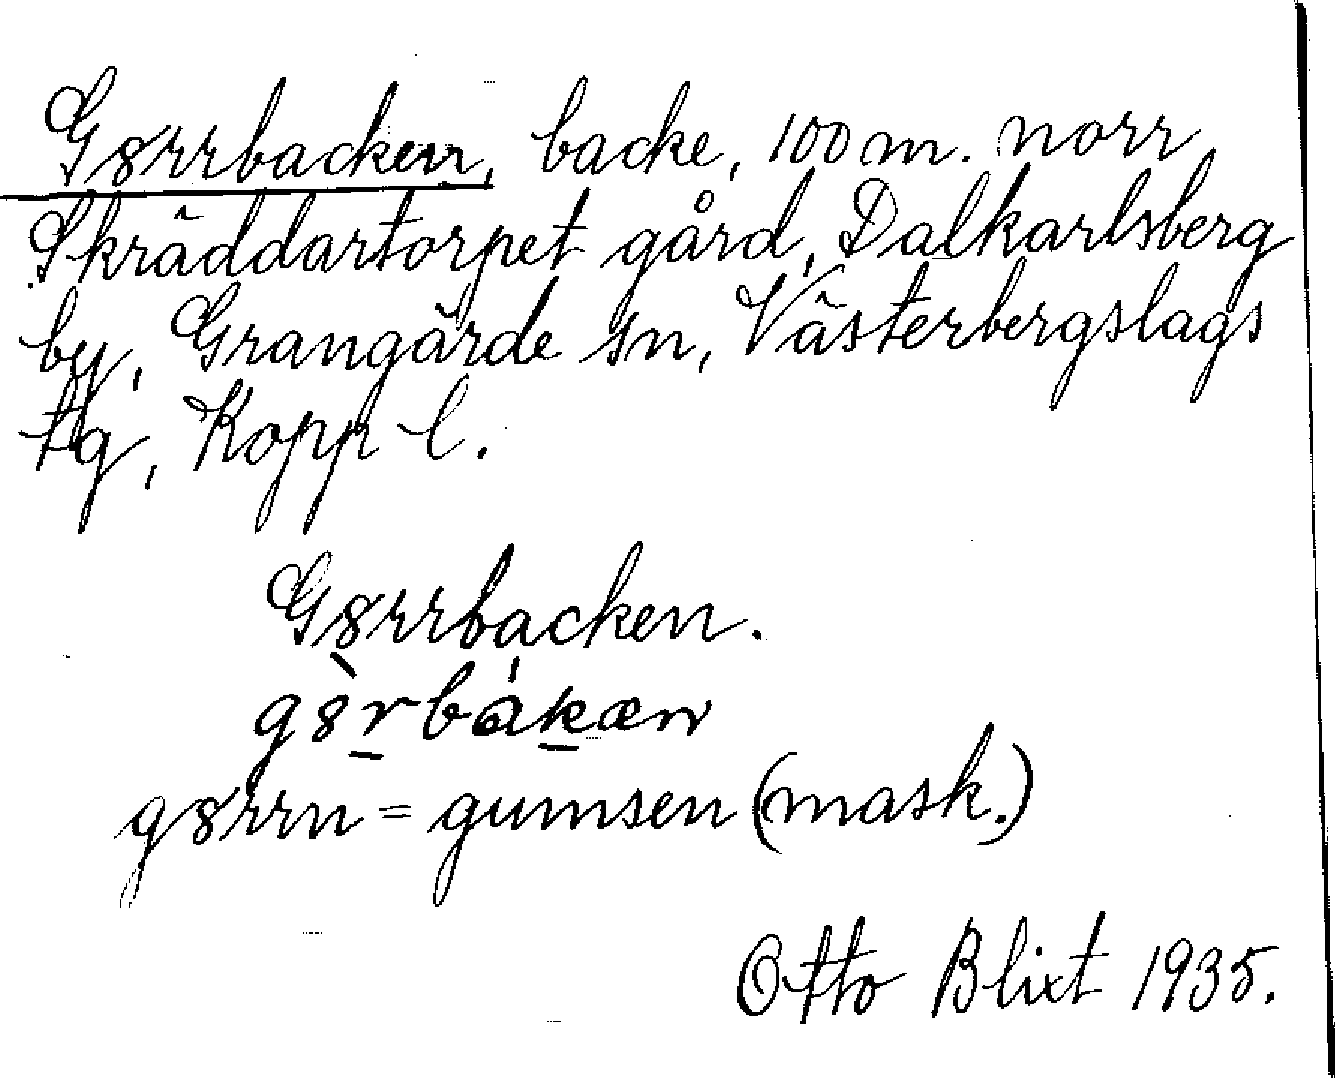 G8rrbacken, backe, 100 m. norr
Skräddartorpet gård, Dalkarlsberg
by, Grangärde sn, Västerbergslags
tg, Kopp l.
G8rrbacken.
g8̀rbákæn
g8rrn = gumsen (mask.)
Otto Blixt 1935.